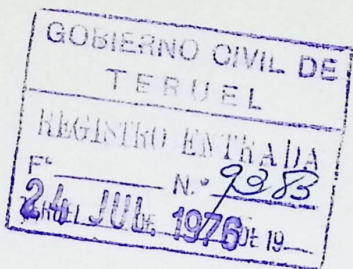 GOBIERNO CIVIL DE
TERUEL
REGISTRO ENTRADA
Fº N.º 9283
TERUEL 24 JUL. DE 1976 DE 19